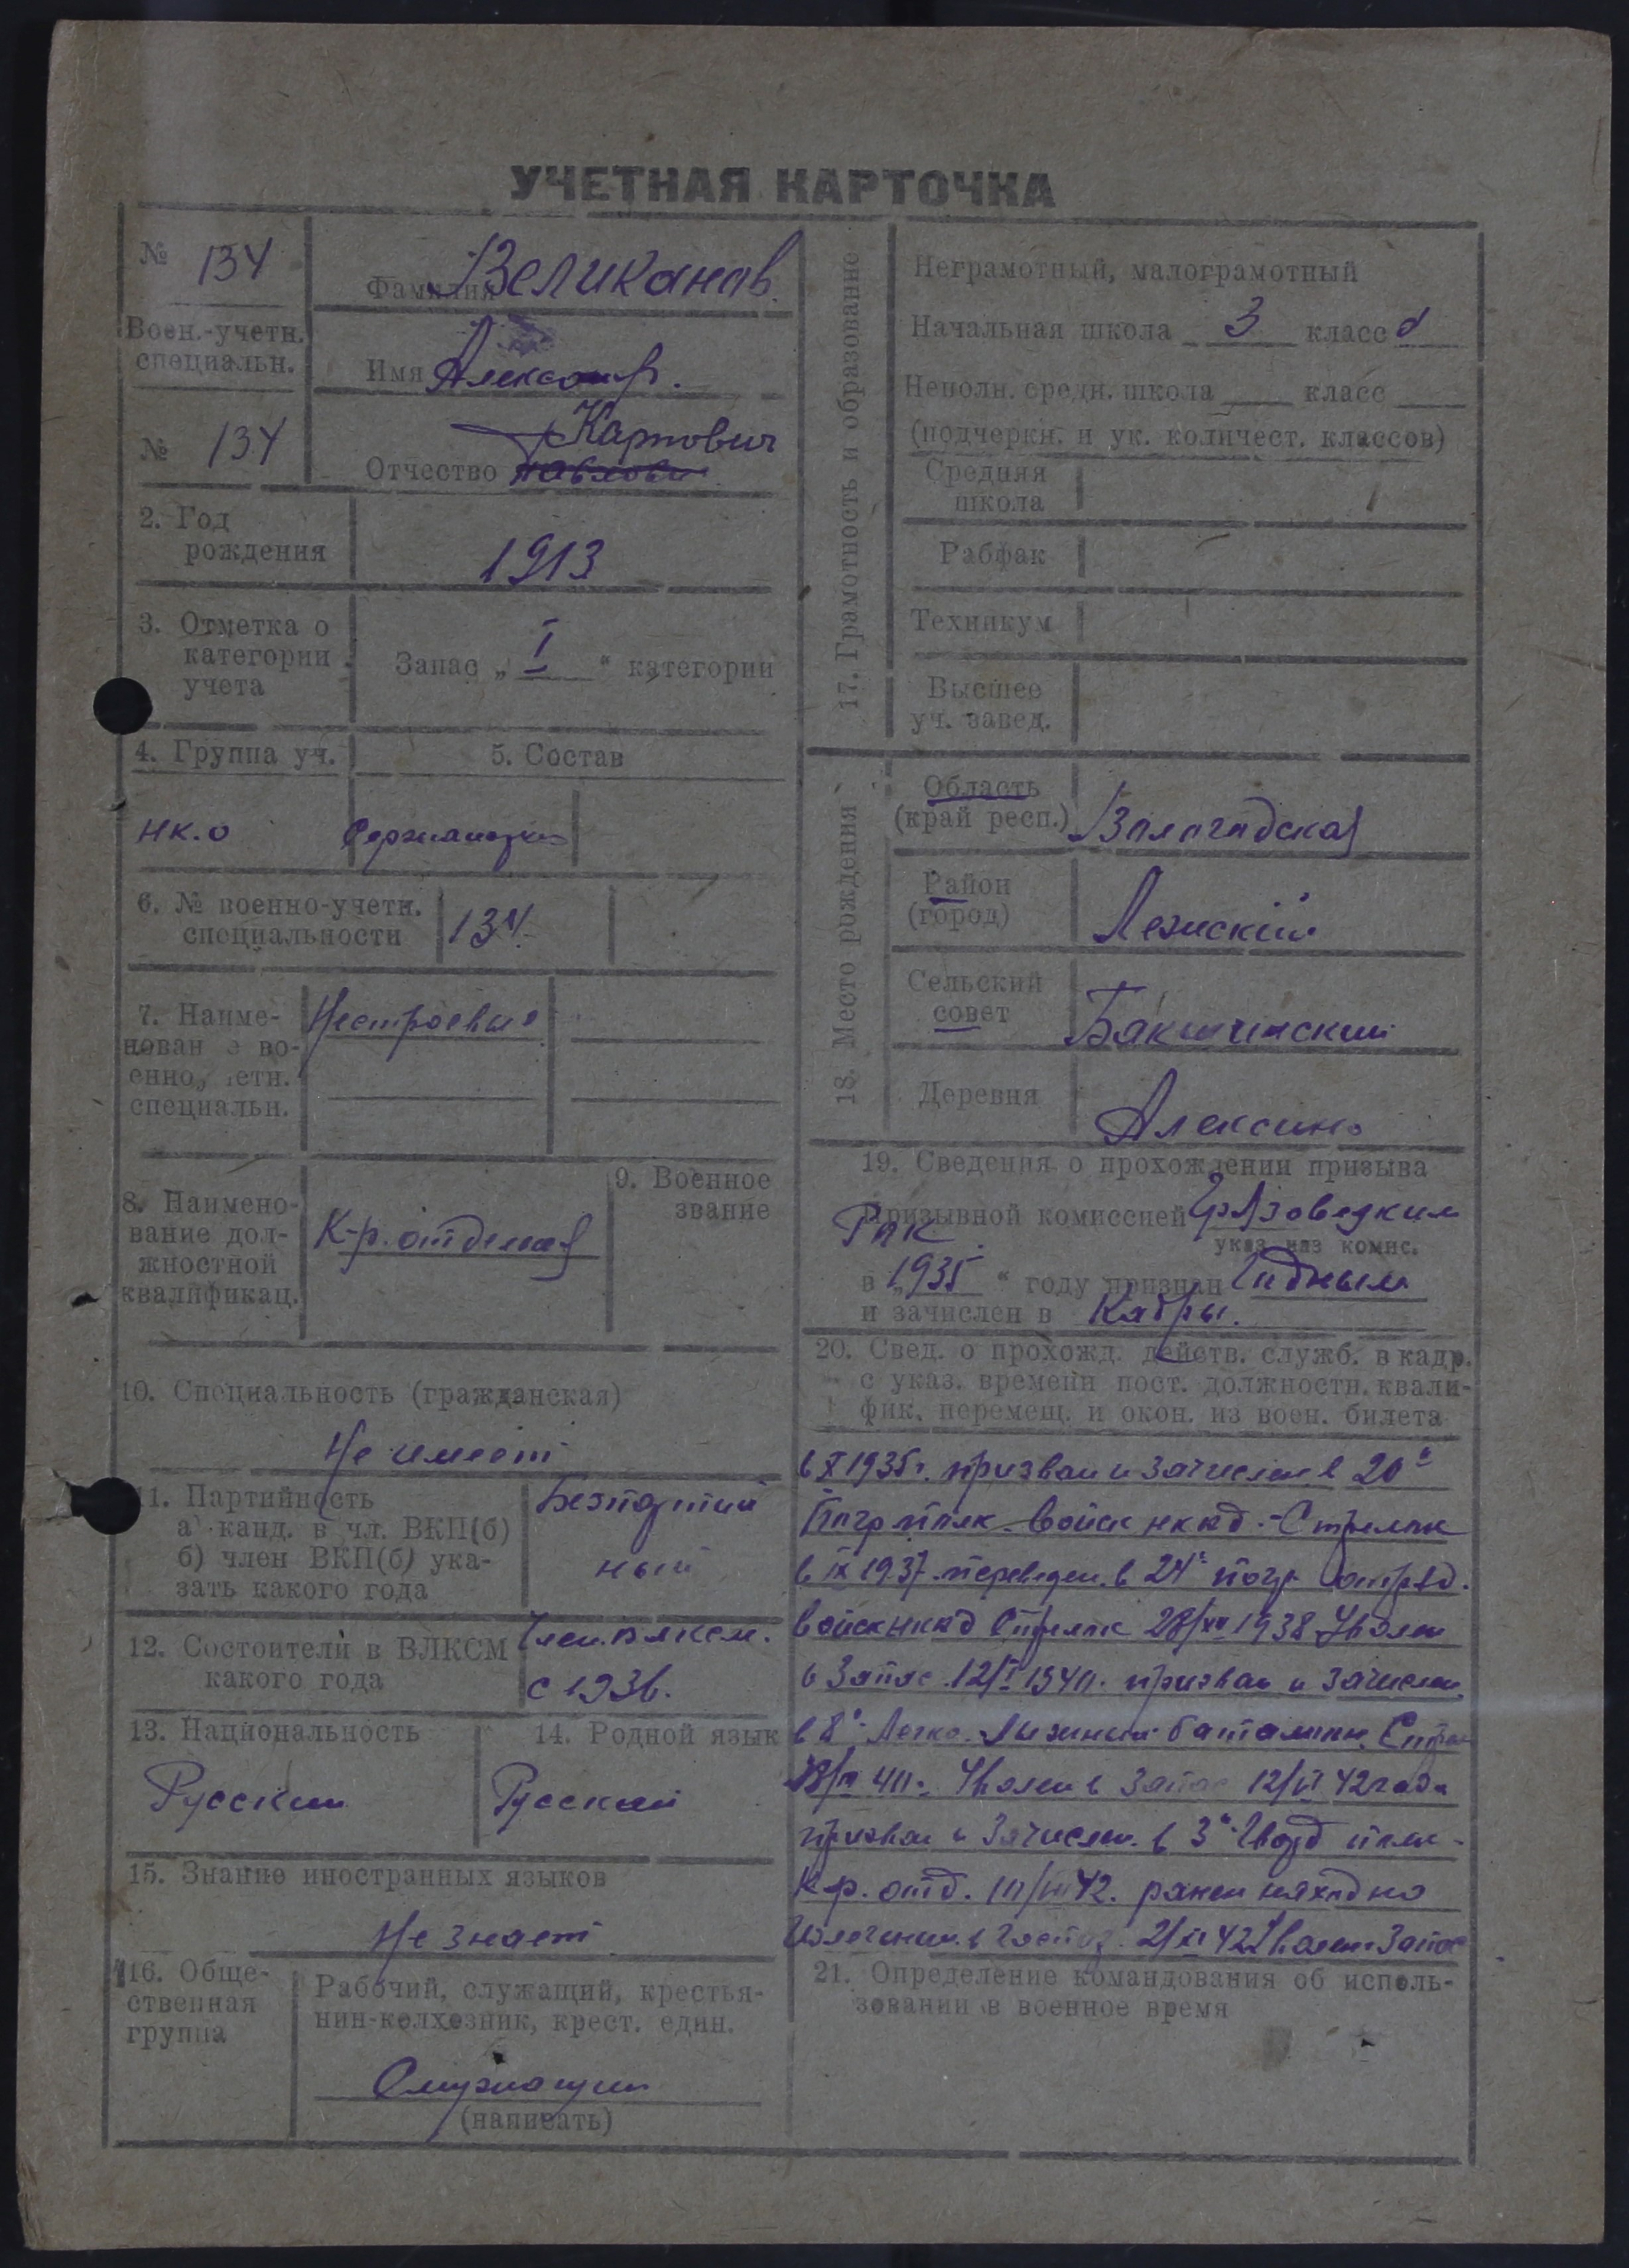 УЧЕТНАЯ КАРТОЧКА
№ 134
Воен.-учетн.
специальн.
№ 134
Фамилия Великанов.
Имя Александр.
Карпович
Отчество Павлович
2. Год
рождения
1913
3. Отметка о
категории
учета
Запас „ I “ категории
4. Группа уч.
5. Состав
нк.о
Сержантский
6. № военно-учетн.
специальности
134
7. Наиме-
нован е во-
енно, етн.
специальн.
Нестроевые
8. Наимено-
вание дол-
жностной
квалификац.
К-р. отдела
9. Военное
звание
10. Специальность (гражданская)
Не имеет
11. Партийность
а канд. в чл. ВКП(б)
б) член ВКП(б) ука-
зать какого года
Безпартий
ный
12. Состоители в ВЛКСМ
какого года
Член.влксм.
с 1936.
13. Национальность
Русский
14. Родной язык
Русский
15. Знание иностранных языков
Не знает
16. Обще-
ственная
группа
Рабочий, служащий, крестья-
нин-колхозник, крест. един.
Служащий
(написать)
17. Грамотность и образование
Неграмотный, малограмотный
Начальная школа 3 класс а
Неполн. средн. школа класс
(подчеркн. и ук. количест. классов)
Средняя
школа
Рабфак
Техникум
Высшее
уч. завед.
18. Место рождения
Область
(край респ.)
Вологодская
Район
(город)
Лежский
Сельский
совет
Бакшинский
Деревня
Алексино
19. Сведения о прохождении призыва
Призывной комиссией Грязовецким
РПК
указ наз комис.
в 1935 “ году признан Годным
и зачислен в Кадры.
20. Свед. о прохожд. действ. служб. в кадр.
с указ. времени пост. должностн. квали-
фик, перемещ. и окон. из воен. билета
в X 1935г. призван и зачислен в 20й
Погр полк. войск нквд - Стрелок
в IX 1937 переведен. в 24й погр отряд.
войск нквд Стрелок 28/XII 1938 Уволен
в Запас 12/I 1940. призван и зачислен
в 8й Легко. Лыжный баталион. Стрел
40. Уволен в Запас 12/VI 42 года
призван и Зачислен. в 3й Гвард полк -
К-р. отд. 10/VIII 42. ранен находио
Излечении. в Госпоз. 2/XI 42 Уволен Запас
21. Определение командования об исполь-
зовании в военное время